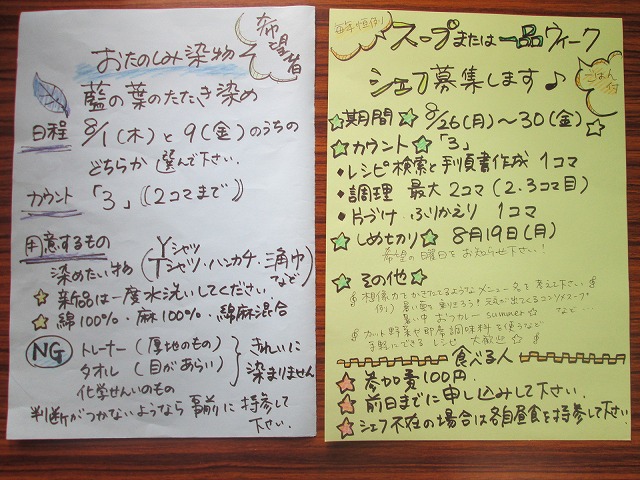 希望者
おたのしみ染物
藍の葉のたたき染め
日程 8/1(木)と9(金)のうちの
どちらか選んで下さい.
カウント 「3」(2コマまで)
用意するもの
染めたい物 (Yシャツ
Tシャツ・ハンカチ・三角巾
など)
☆ 新品は一度水洗いしてください
☆ 綿100%・麻100%・綿麻混合
NG トレーナー(厚地のもの)
タオル(目があらい)
化学せんいのもの
きれいに
染まりません
判断がつかないようなら事前に持参して
下さい.
毎年恒例
スープまたは一品ウィーク
シェフ募集します♪
ごはん付
☆期間☆ 8/26(月)~30(金)
☆カウント☆ 「3」
・レシピ検索と手順書作成 1コマ
・調理 最大2コマ(2.3コマ目)
・片づけ ふりかえり 1コマ
☆しめきり☆ 8月19日(月)
希望の曜日をお知らせ下さい!
☆その他☆
想像力をかきたてるようなメニュー名を考えて下さい
例) 暑い夏を乗りきろう!元気が出てくるコンソメスープ・
暑い中 おつカレー summer☆ など…
カット野菜や即席調味料を使うなど
手軽にできるレシピ 大歓迎☆
食べる人
☆ 参加費100円.
☆ 前日までに申し込みして下さい.
☆ シェフ不在の場合は各自昼食を持参して下さい.